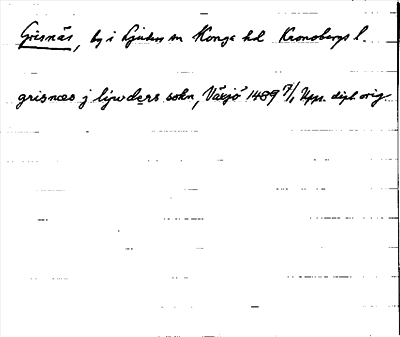 Grisnäs, by i Ljuders sn Konga hd Kronobergs l.
grisnæs j lijwders sokn, Växjö 1489 7/1 Upps. dipl. orig.